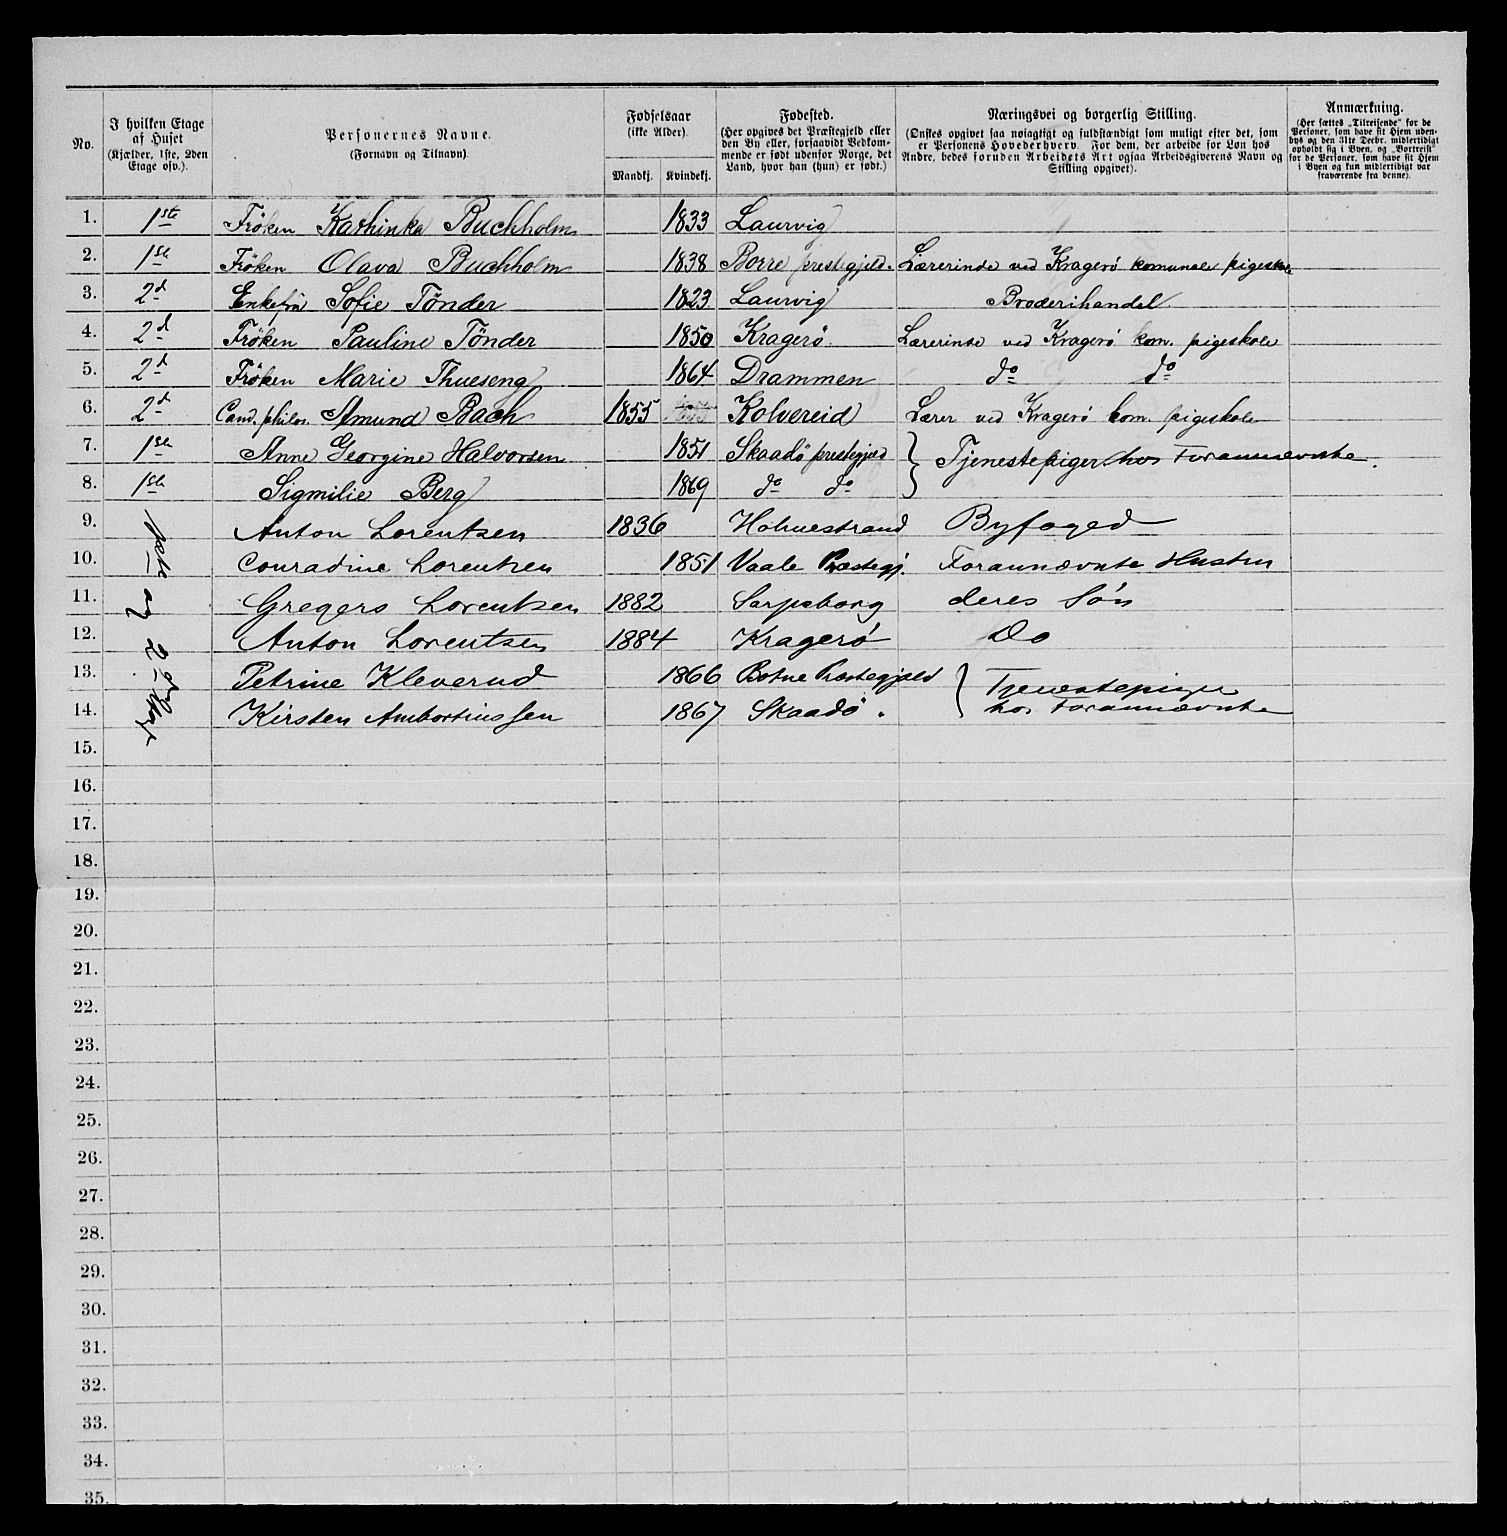 No. I hvilken Etage af Huset (Kjælder, 1ste, 2den Etage osv.). Personernes Navne. (Fornavn og Tilnavn). Fødselsaar (ikke Alder). Mandkj. Kvindekj. Fødested. (Her opgives det Præstegjeld eller den By eller, forsaavidt Vedkommende er født udenfor Norge, det Land, hvor han (hun) er født.) Næringsvei og borgerlig Stilling. (Ønskes opgivet saa nøiagtigt og fuldstændigt som muligt efter det, som er Personens Hovederhverv. For dem, der arbeide for Løn hos Andre, bedes foruden Arbeidets Art ogsaa Arbeidsgiverens Navn og Stilling opgivet). Anmærkning. (Her sættes „Tilreisende“ for de Personer, som have sit Hjem udenbys og den 31te Decbr. midlertidigt opholdt sig i Byen, og „Bortreist“ for de Personer, som have sit Hjem i Byen og kun midlertidigt var fraværende fra denne).
1. 1ste Fröken Kathinka Buchholm 1833 Laurvig
2. 1ste Fröken Olava Buchholm 1838 Borre prestegjeld. Lærerinde ved Kragerö komunale pigeskole
3. 2d Enkefru Sofie Tönder 1823 Laurvig Broderihandel
4. 2d Fröken Pauline Tönder 1850 Kragerö. Lærerinde ved Kragerö kom. pigeskole
5. 2d Fröken Marie Thueseng 1864 Drammen do do
6. 2d Cand. philos. Amund Bach 1855 Kolvereid Lærer ved Kragerö kom. pigeskole
7. 1ste Anne Georgine Halvorsen 1851 Skaadö prestegjeld Tjenestepiger hos Forannævnte.
8. 1ste Sigmilie Berg 1869 do do
9. 1ste og 2den Anton Lorentzen 1836 Holmestrand Byfoged
10. Conradine Lorentzen 1851 Vaale Præstegj. Forannævnte Hustru
11. Gregers Lorentzen 1882 Sarpsborg deres Søn
12. Anton Lorentzen 1884 Kragerø Do
13. Petrine Kleverud 1866 Botne Præstegjæld Tjenestepiger
14. Kirsten Ambortiussen 1867 Skaadö. hos Forannævnte
15.
16.
17.
18.
19.
20.
21.
22.
23.
24.
25.
26.
27.
28.
29.
30.
31.
32.
33.
34.
35.